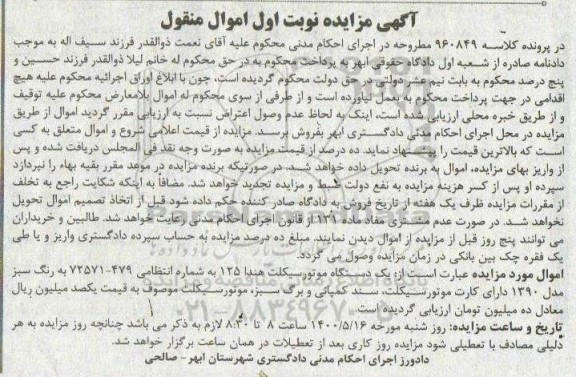 آگهی مزایده نوبت اول اموال منقول
در پرونده کلاسه ۹۶۰۸۴۹ مطروحه در اجرای احکام مدنی محکوم علیه آقای نعمت ذوالقدر فرزند سیف اله به موجب
دادنامه صادره از شعبه اول دادگاه حقوقی ابهر به پرداخت محکوم به در حق محکوم له خانم لیلا ذوالقدر فرزند حسین و
پنج درصد محکوم به بابت نیم عشر دولتی در حق دولت محکوم گردیده است، چون با ابلاغ اوراق اجرائیه محکوم علیه هیچ
اقدامی در جهت پرداخت محکوم به بعمل نیاورده است و از طرفی از سوی محکوم له اموال بلامعارض محکوم علیه توقیف
و از طریق خبره محلی ارزیابی شده است، اینک به لحاظ عدم وصول اعتراض نسبت به ارزیابی مقرر گردید اموال از طریق
مزایده در محل اجرای احکام مدنی دادگستری ابهر بفروش برسد. مزایده از قیمت اعلامی شروع و اموال متعلق به کسی
است که بالاترین قیمت را پیشنهاد نماید. ده درصد از قیمت مزایده به صورت وجه نقد فی المجلس دریافت شده و پس
از واریز بهای مزایده، اموال به برنده تحویل داده خواهد شد. در صورتیکه برنده مزایده در موعد مقرر بقیه بهاء را نپردازد
سپرده او پس از کسر هزینه مزایده به نفع دولت ضبط و مزایده تجدید خواهد شد. مضافاً به اینکه شکایت راجع به تخلف
از مقررات مزایده ظرف یک هفته از تاریخ فروش به دادگاه صادر کننده حکم داده شود قبل از اتخاذ تصمیم اموال تحویل
نخواهد شد. در صورت عدم مشتری مفاد ماده ۱۳۱ از قانون اجرای احکام مدنی رعایت خواهد شد. طالبین و خریداران
می توانند پنج روز قبل از مزایده از اموال دیدن نمایند. مبلغ ده درصد مزایده به حساب سپرده دادگستری واریز و یا طی
یک فقره چک بین بانکی در زمان مزایده وصول می گردد.
اموال مورد مزایده عبارت است از: یک دستگاه موتورسیکلت هندا ۱۲۵ به شماره انتظامی ۴۷۹-۷۲۵۷۱ به رنگ سبز
مدل ۱۳۹۰ دارای کارت موتورسیکلت، سند کمپانی و برگ سبز، موتورسیکلت موصوف به قیمت یکصد میلیون ریال
معادل ده میلیون تومان ارزیابی گردیده است.
تاریخ و ساعت مزایده: روز شنبه مورخه ۱۴۰۰/۵/۱۶ ساعت ۸ تا ۸:۳۰ لازم به ذکر می باشد چنانچه روز مزایده به هر
دلیلی مصادف با تعطیلی شود مزایده روز کاری بعد از تعطیلات در همان ساعت برگزار خواهد شد.
دادورز اجرای احکام مدنی دادگستری شهرستان ابهر- صالحی
۰۲۱-۸۸۳۴۹۶۷۰